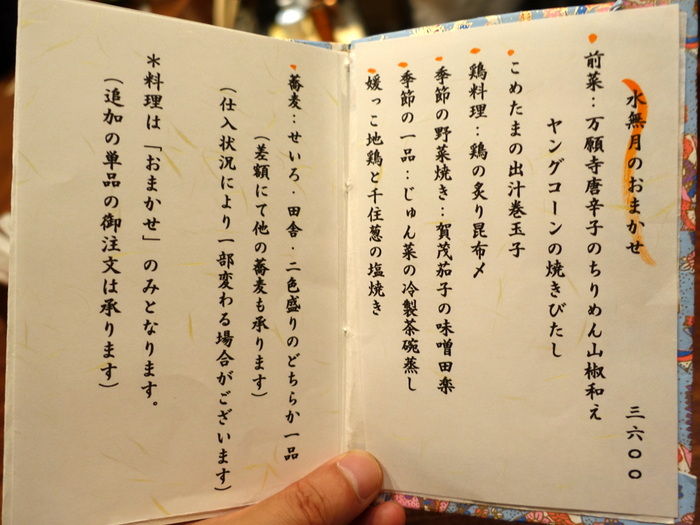 水無月のおまかせ 三六〇〇
前菜：万願寺唐辛子のちりめん山椒和え
ヤングコーンの焼きびたし
こめたまの出汁巻玉子
鶏料理：鶏の炙り昆布〆
季節の野菜焼き：賀茂茄子の味噌田楽
季節の一品：じゅん菜の冷製茶碗蒸し
媛っこ地鶏と千住葱の塩焼き
蕎麦：せいろ・田舎・二色盛りのどちらか一品
（差額にて他の蕎麦も承ります）
（仕入状況により一部変わる場合がございます）
＊料理は「おまかせ」のみとなります。
（追加の単品の御注文は承ります）